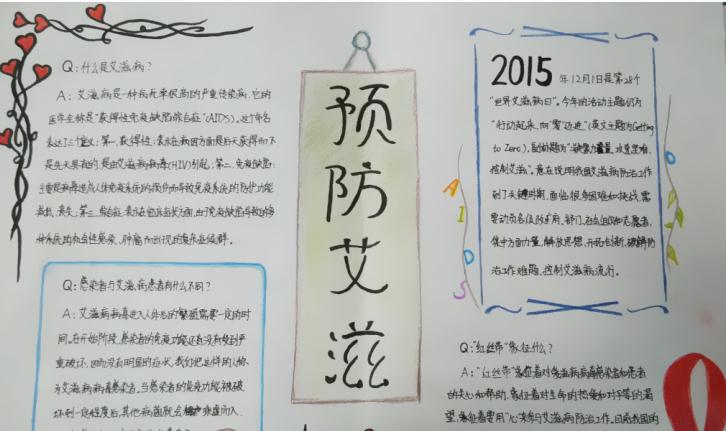 Q:什么是艾滋病?
A:艾滋病是一种病死率很高的严重传染病,它的
医学全称是“获得性免疫缺陷综合症”(AIDS)。这个命名
表达了三个定义:第一,获得性:表示在病因方面是后天获得而不
是先天具有的,是由艾滋病病毒(HIV)引起;第二,免疫缺陷:
主要是病毒造成人体免疫系统的损伤而导致免疫系统的防护功能
第三,综合症:表示在临床症状方面,由于免疫缺陷导致的
系统的机会性感染、肿瘤而出现的复杂症候群。
Q:感染者与艾滋病患者有什么不同?
A:艾滋病病毒进入人体后的繁殖需要一定的时
间。在开始阶段,感染者的免疫功能还没有受到严
重破坏,因而没有明显的症状,我们把这样的人称
为艾滋病病毒感染者。当感染者的免疫功能被破
坏到一定程度后,其他病菌就会乘虚而入,
预防艾滋
2015年12月1日是第28个
“世界艾滋病日”。今年的活动主题仍为
“行动起来,向‘零’迈进”(英文主题为Getting
to Zero),副标题为“合力量,攻坚克难,
控制艾滋”。意在说明我国艾滋病防治工作
到了关键时期,面临很多困难和挑战,需
要动员各级政府、部门、社会组织和志愿者,
集中力量,解放思想,开拓创新,破解防
治工作难题,控制艾滋病流行。
AIDS
Q:“红丝带”象征什么?
A:“红丝带”象征着对艾滋病病毒感染者和患者
的关心和帮助,象征着对生命的热爱和对平等的渴
望,象征着要用“心”来参与艾滋病防治工作。目前我国的